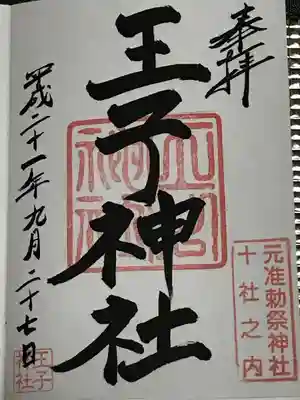 奉拝
元准勅祭神社
十社之内
王子神社
平成二十一年九月二十七日
王子
神社